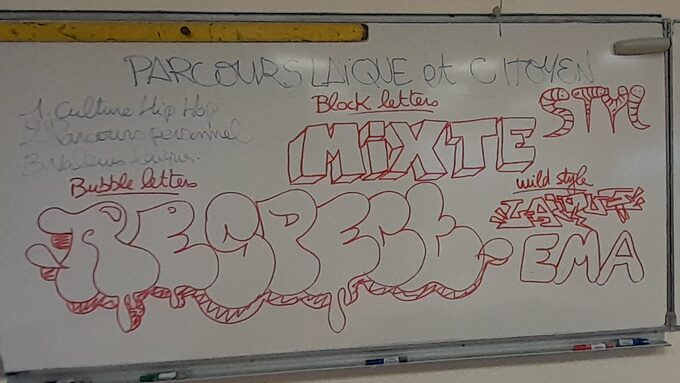 PARCOURS LAÏQUE et CITOYEN
1. Culture Hip Hop
2. Parcours personnel
3. Valeurs
Block letters
MiXTE
STYL
Bubble letters
RESPECt
wild style
LAÏQUE
EMA